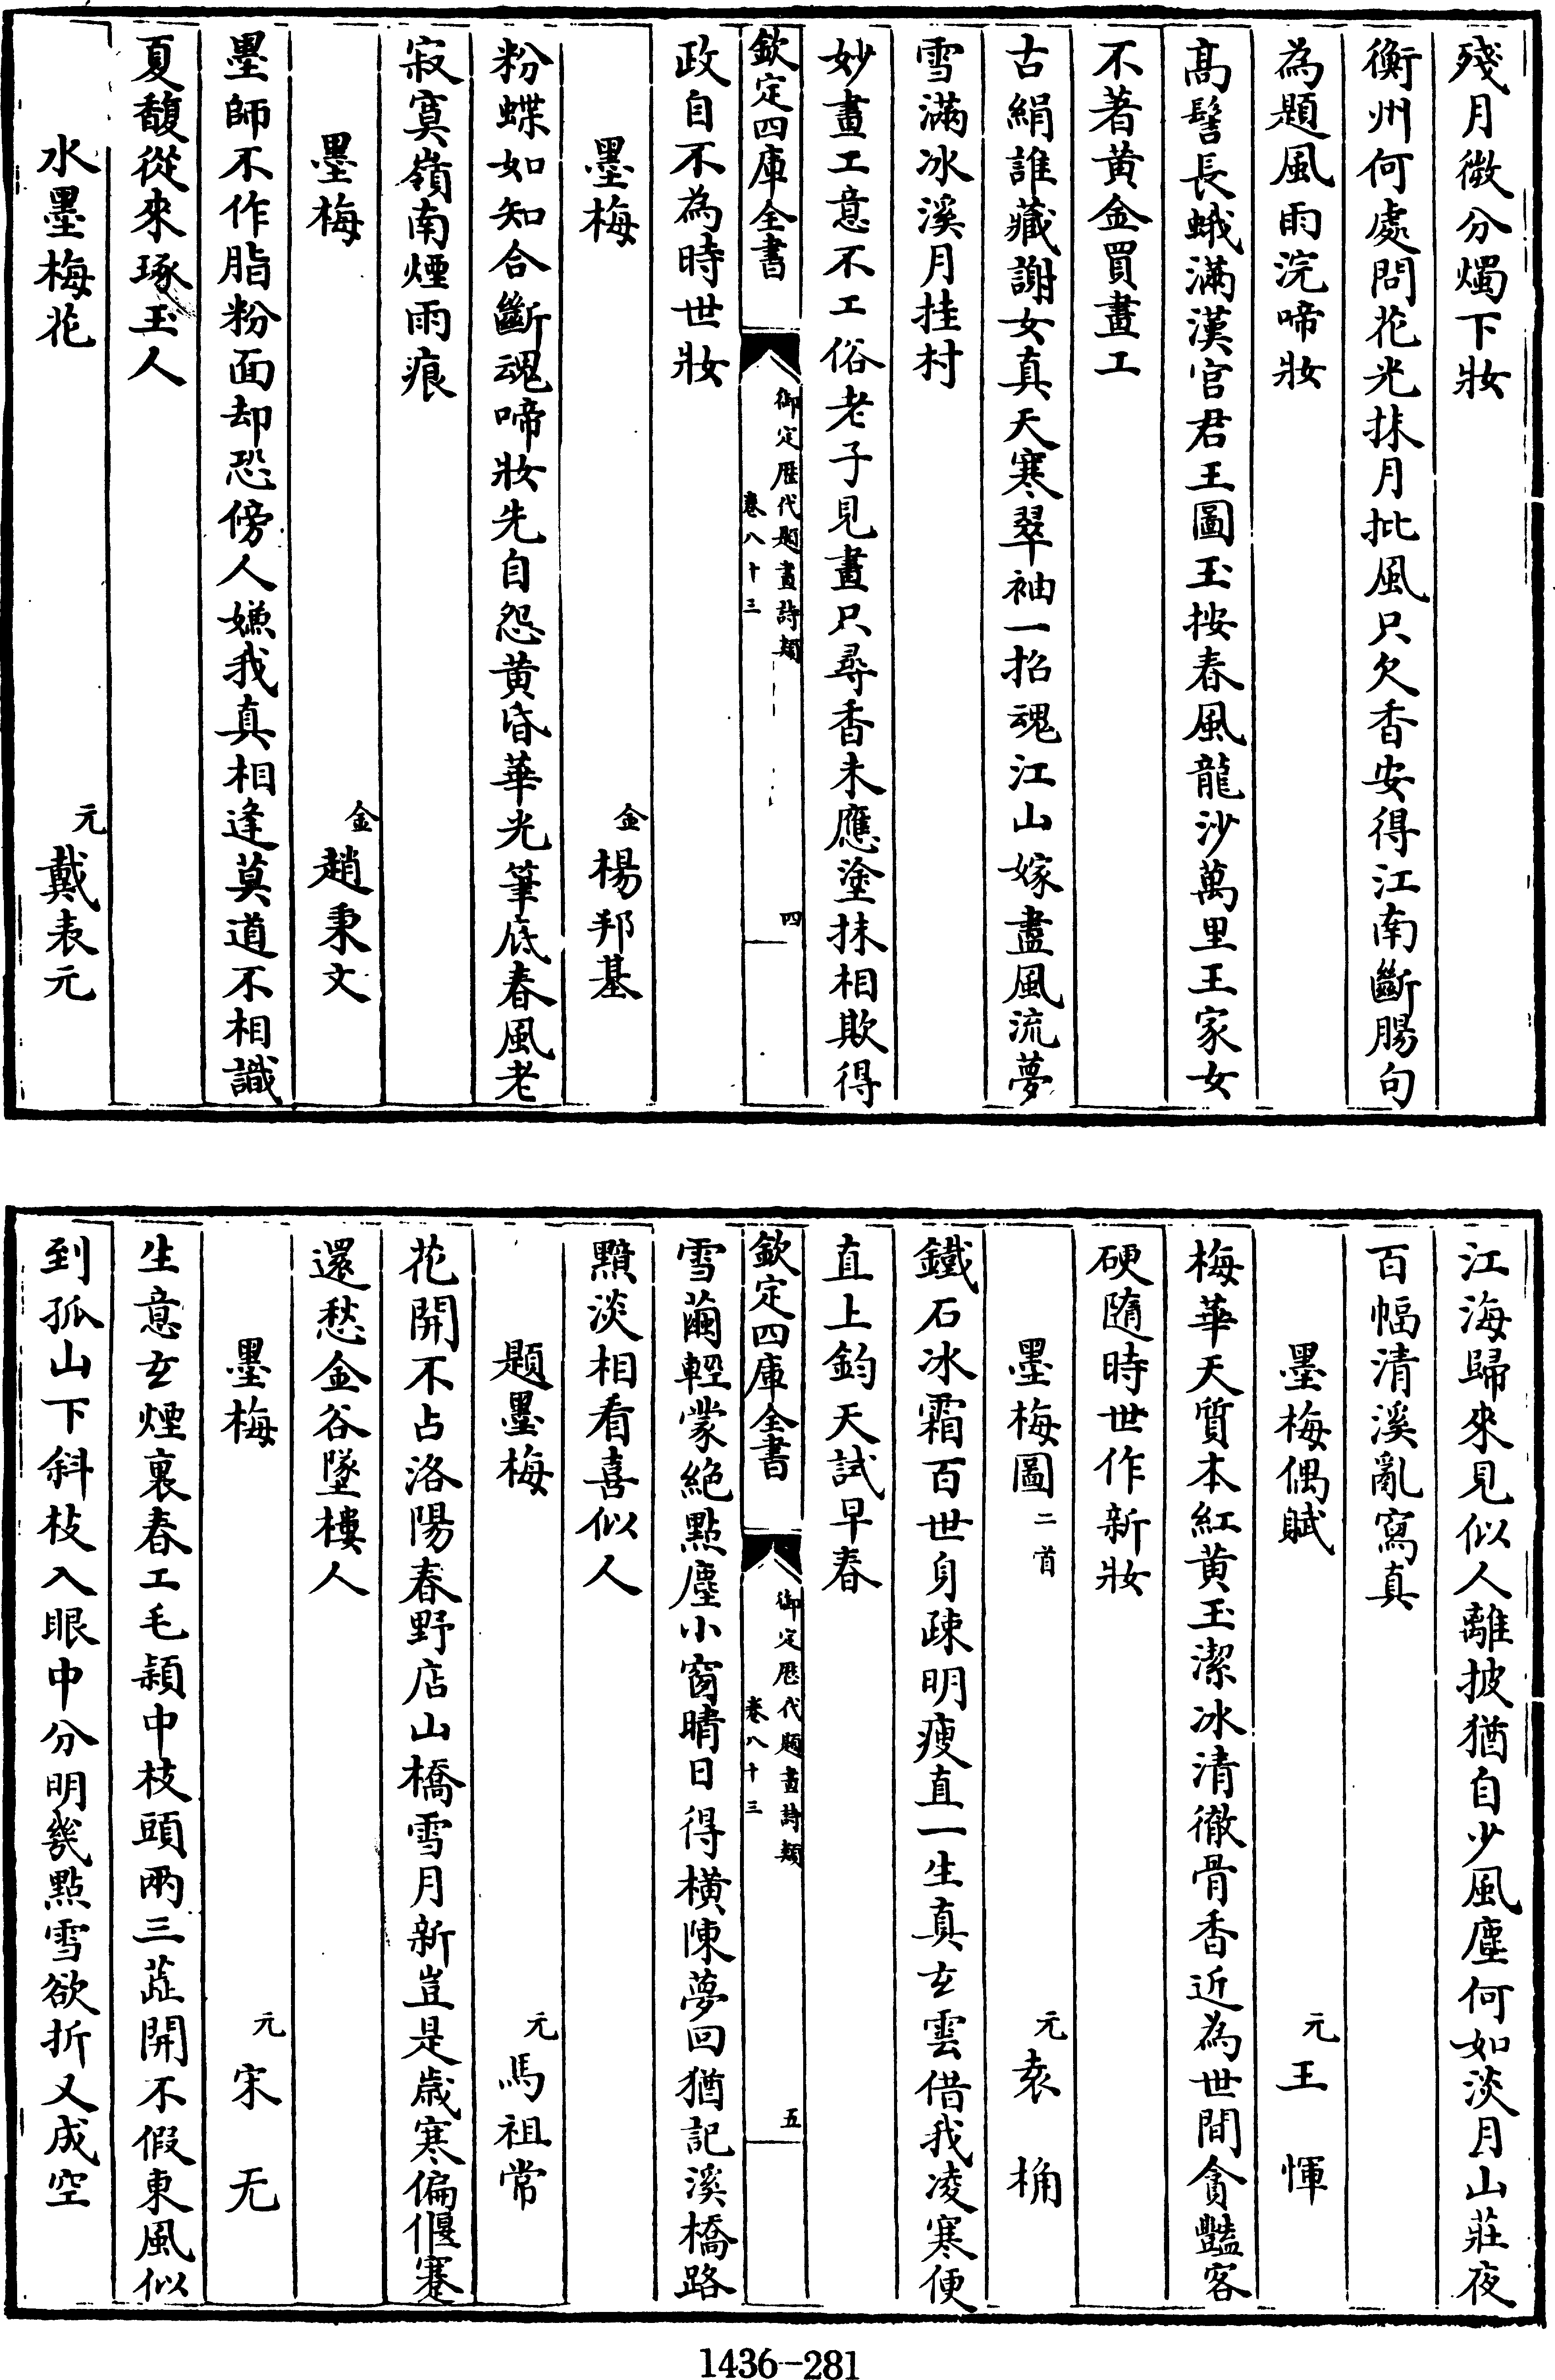 殘月微分燭下妝
衡州何處問花光抹月批風只欠香安得江南斷腸句
為題風雨浣啼妝
髙髻長蛾滿漢宫君王圖玉按春風龍沙萬里王家女
不著黄金買畫工
古絹誰藏謝女真天寒翠袖一招魂江山嫁盡風流夢
雪滿冰溪月挂村
妙畫工意不工俗老子見畫只尋香未應塗抹相欺得
欽定四庫全書
御定歷代題畫詩類
卷八十三
四
政自不為時世妝
墨梅
金楊邦基
粉蝶如知合斷魂啼妝先自怨黄昏華光筆底春風老
寂寞嶺南煙雨痕
墨梅
金趙秉文
墨師不作脂粉面却恐傍人嫌我真相逢莫道不相識
夏馥從來琢玉人
水墨梅花
元戴表元
江海歸來見似人離披猶自少風塵何如淡月山莊夜
百幅清溪亂寫真
墨梅偶賦
元王惲
梅華天質本紅黄玉潔冰清徹骨香近為世間貪豔客
硬隨時世作新妝
墨梅圖二首
元袁桷
鐵石冰霜百世身疎明瘦直一生真玄雲借我凌寒便
直上鈞天試早春
欽定四庫全書
御定歷代題畫詩類
卷八十三
五
雪繭輕蒙絶點塵小窗晴日得橫陳夢回猶記溪橋路
黯淡相看喜似人
題墨梅
元馬祖常
花開不占洛陽春野店山橋雪月新豈是歲寒偏偃蹇
還愁金谷墜樓人
墨梅
元宋无
生意玄煙裏春工毛穎中枝頭兩三蕋開不假東風似
到孤山下斜枝入眼中分明幾點雪欲折又成空
1436-281